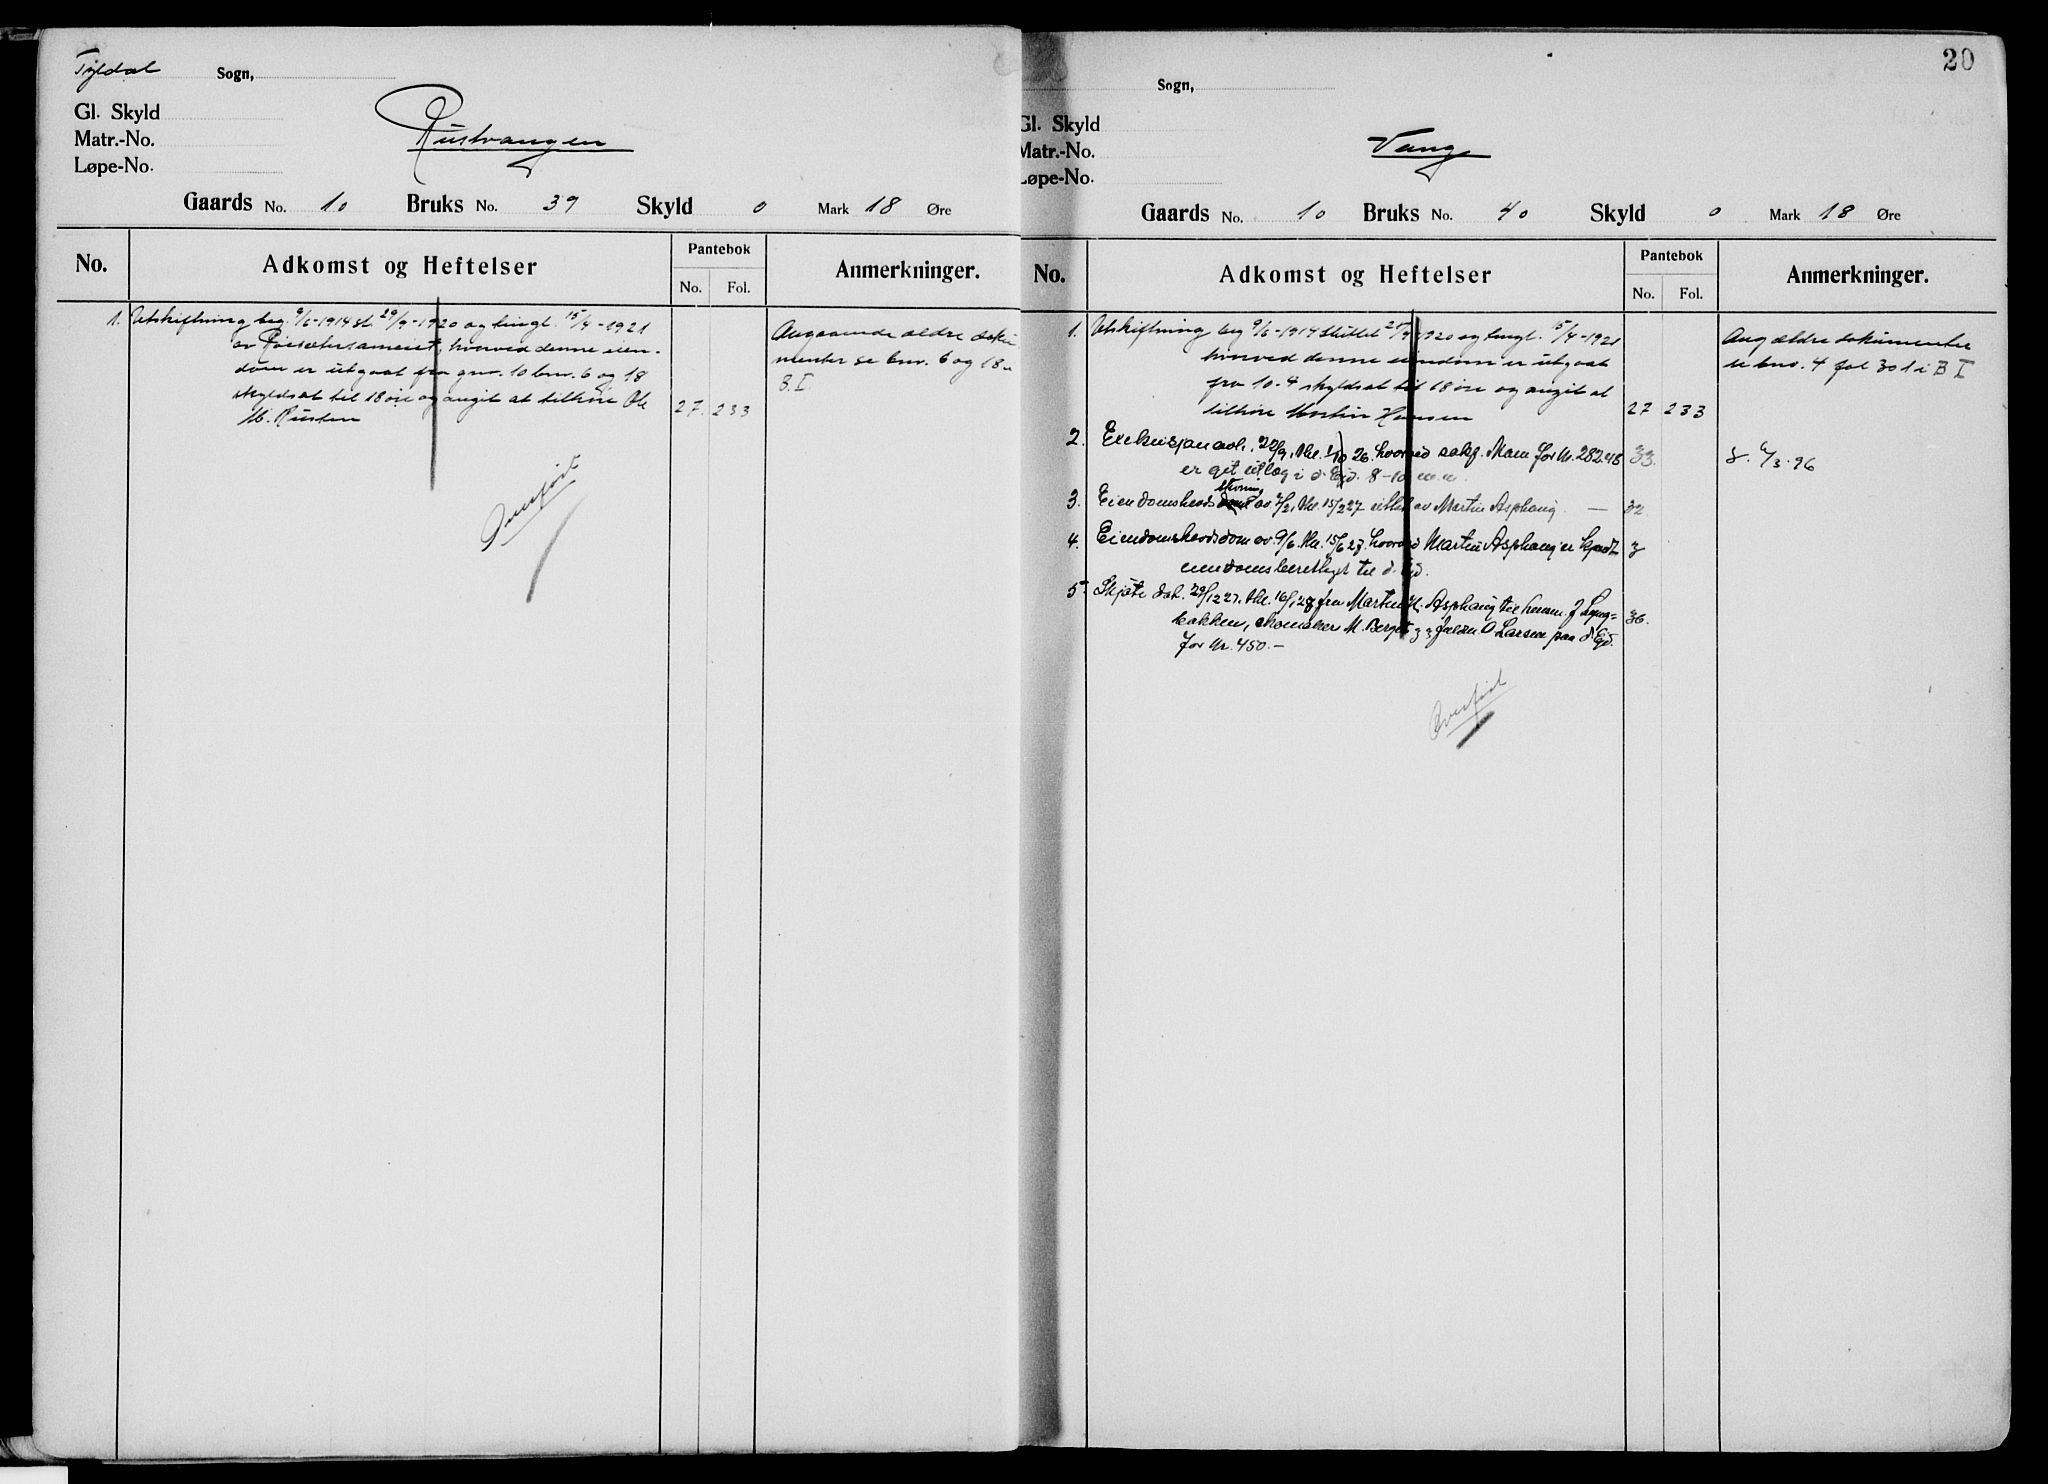 Tyldal Sogn,
Gl. Skyld
Matr.-No.
Løpe-No.
Rustvangen
Gaards No. 10 Bruks No. 39 Skyld 0 Mark 18 Øre
No. Adkomst og Heftelser Pantebok Anmerkninger.
No. Fol.
1. Utskiftning beg. 9/6-1914 sl. 29/9-1920 og tingl. 15/4-1921
av Røisætersameiet, hvorved denne eien-
dom er utgaat fra gnr. 10 bnr. 6 og 18
skyldsat til 18 øre og angit at tilhøre Ole
M. Rusten 27. 233
Angaaende ældre doku
menter se bnr. 6 og 18
B. I
Overført
20
Sogn,
Gl. Skyld
Matr.-No.
Løpe-No.
Vang
Gaards No. 10 Bruks No. 40 Skyld 0 Mark 18 Øre
No. Adkomst og Heftelser Pantebok Anmerkninger.
No. Fol.
1. Utskiftning beg 9/6-1914 sluttet 29/9-1920 og tingl. 15/4-1921
hvorved denne eiendom er utgaat
fra 10-4 skyldsat til 18 øre og angit at
tilhøre Martin Hansen 27 233
Ang ældre dokumenter
se bnr. 4 fol 301 i B I
2. avh. 29/9, thl. 1/10 26. hvorved sakf. Mam for kr. 282.48 33.
er git utlæg i d. Eid. 8-10 m.m.
3. Eiendomshevds av thl. 15/2 27 av Martin Asphaug — 32
4. Eiendomshevdsdom av 9/6. thl. 15/6 27. hvorved Martin Asphaug er kjendt
eiendomsberettiget til d. Eid.
5. Skjøte dat. 29/12 27, thl. 16/1 28 fra Martin H. Asphaug til J
bakken, skomaker M. Berget og O Larsen paa d. Eid. 36.
for kr. 450.-
Overført